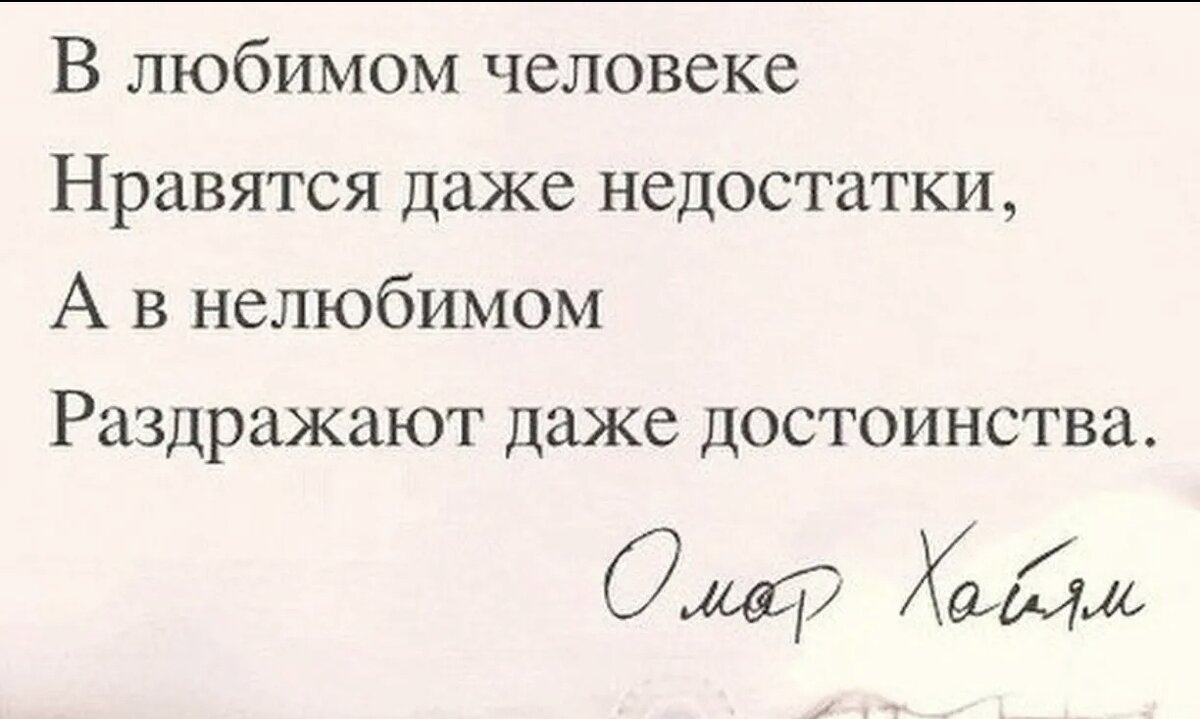 В любимом человеке
Нравятся даже недостатки,
А в нелюбимом
Раздражают даже достоинства.
Омар Хайям